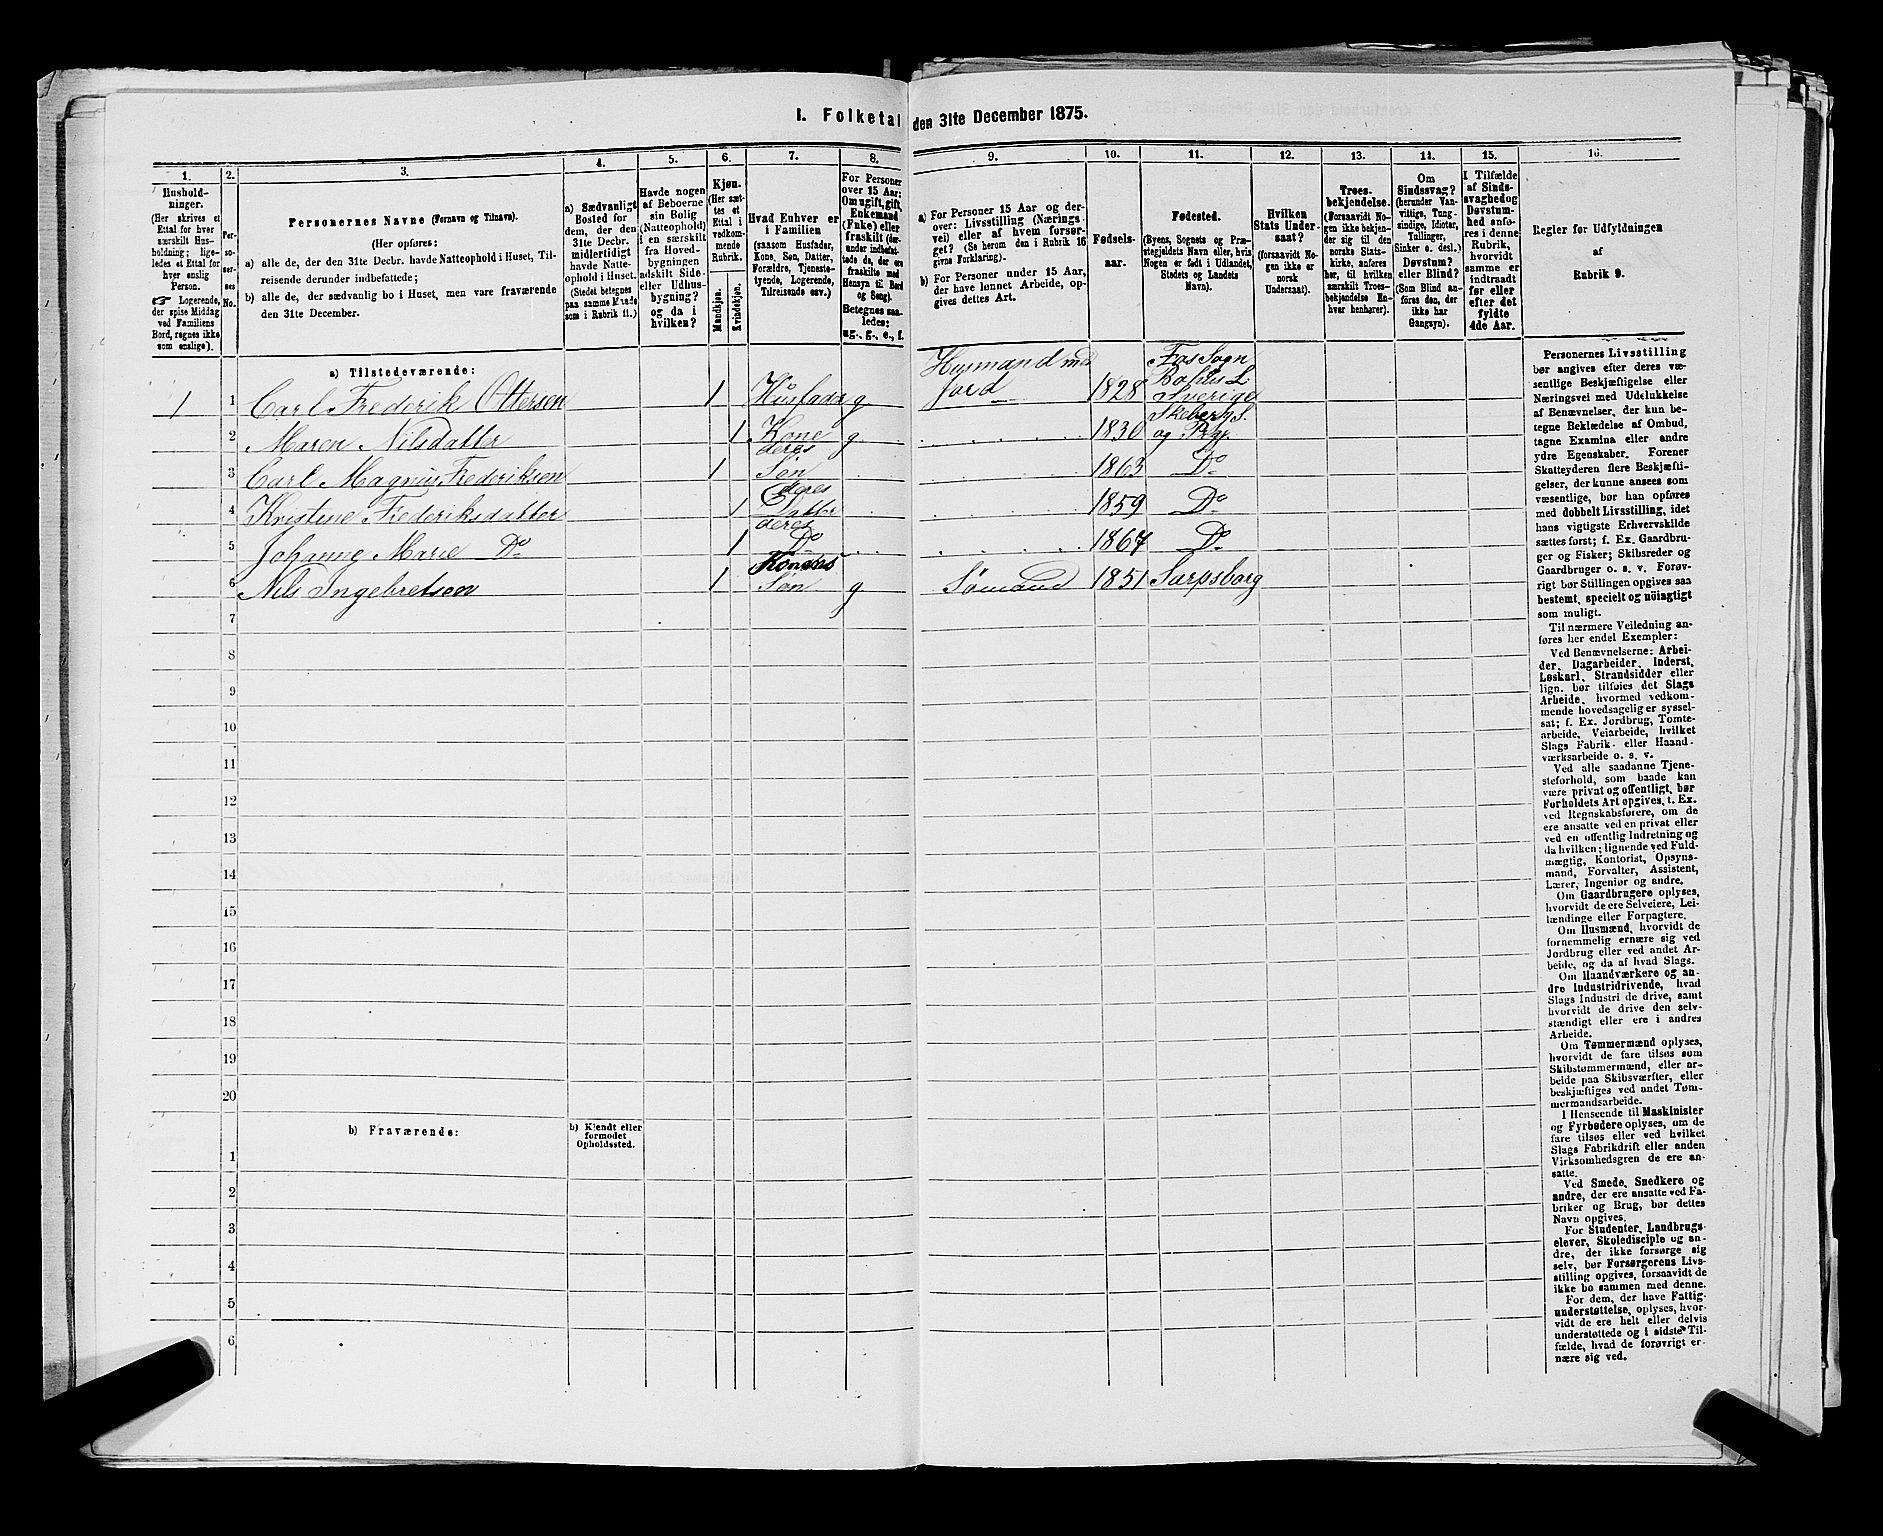 I. Folketal den 31te December 1875.
1. 2. 3. 4. 5. 6. 7. 8. 9. 10. 11. 12. 13. 14. 15. 16.
Hushold-
ninger.
(Her skrives et
Ettal for hver
særskilt Hus-
holdning; lige-
ledes et Ettal for
hver enslig
Person.
☞ Logerende,
der spise Middag
ved Familiens
Bord, regnes ikke
som enslige).
Per-
so-
ner-
nes
No.
Personernes Navne (Fornavn og Tilnavn).
(Her opføres:
a) alle de, der den 31te Decbr. havde Natteophold i Huset, Til-
reisende derunder indbefattede;
b) alle de, der sædvanlig bo i Huset, men vare fraværende
den 31te December.
a) Sædvanligt
Bosted for
dem, der den
31te Decbr.
midlertidigt
havde Natte-
ophold i Huset.
(Stedet betegnes
paa samme Maade
som i Rubrik 11.)
Havde nogen
af Beboerne
sin Bolig
(Natteophold)
i en særskilt
fra Hoved-
bygningen
adskilt Side-
eller Udhus-
bygning?
og da i
hvilken?
Kjøn.
(Her sæt-
tes et
Ettal i
vedkom-
mende
Rubrik.
Mandkjøn.
Kvindekjøn.
Hvad Enhver er
i Familien
(saasom Husfader,
Kone, Søn, Datter,
Forældre, Tjeneste-
tyende, Logerende,
Tilreisende osv.)
For Personer
over 15 Aar:
Om ugift, gift,
Enkemand
(Enke) eller
fraskilt (der-
under indbefat-
tede de, der ere
fraskilte med
Hensyn til Bord
og Seng).
Betegnes saa-
ledes:
ug., g., e., f.
a) For Personer 15 Aar og der-
over: Livsstilling (Nærings-
vei) eller af hvem forsør-
get? (Se herom den i Rubrik 16
givne Forklaring).
b) For Personer under 15 Aar,
der have lønnet Arbeide, op-
gives dettes Art.
Fødsels-
aar.
Fødested.
(Byens, Sognets og Præ-
stegjeldets Navn eller, hvis
Nogen er født i Udlandet,
Stedets og Landets
Navn).
Hvilken
Stats Under-
saat?
(forsaavidt No-
gen ikke er
norsk
Undersaat).
Troes-
bekjendelse.
(Forsaavidt No-
gen ikke bekjen-
der sig til den
norske Stats-
kirke, anføres
her, til hvilken
særskilt Troes-
bekjendelse En-
hver henhører).
Om
Sindssvag?
(herunder Van-
vittige, Tung-
sindige, Idioter,
Tullinger,
Sinker o. desl.)
Døvstum?
eller Blind?
(Som Blind an-
føres den, der
ikke har
Gangsyn).
I Tilfælde
af Sinds-
svaghed og
Døvstum-
hed anfø-
res i denne
Rubrik,
hvorvidt
samme er
indtraadt
før eller
efter det
fyldte
4de Aar.
Regler for Udfyldningen
af
Rubrik 9.
a) Tilstedeværende:
1 1 Carl Frederik Ottersen 1 Husfader g Husmand med Jord 1828 Fos Sogn Bohus L. Sverige
2 Maren Nilsdatter 1 Kone g 1830 Skeberg S. og Prgj.
3 Carl Magnus Frederiksen 1 deres Søn 1863 Do
4 Kristine Frederiksdatter 1 deres Datter 1859 Do
5 Johanne Marie Do 1 deres Do 1867 Do
6 Nils Ingebretsen 1 Konens Søn g Sømand 1851 Sarpsborg
7
8
9
10
11
12
13
14
15
16
17
18
19
20
b) Fraværende:
b) Kjendt eller
formodet
Opholdssted.
1
2
3
4
5
6
Personernes Livsstilling
bør angives efter deres væ-
sentlige Beskjæftigelse eller
Næringsvei med Udelukkelse
af Benævnelser, der kun be-
tegne Beklædelse af Ombud,
tagne Examina eller andre
ydre Egenskaber. Forener
Skatteyderen flere Beskjæfti-
gelser, der kunne ansees som
væsentlige, bør han opføres
med dobbelt Livsstilling, idet
hans vigtigste Erhvervskilde
sættes først; f. Ex. Gaardbru-
ger og Fisker; Skibsreder og
Gaardbruger o. s. v. Forøv-
rigt bør Stillingen opgives saa
bestemt, specielt og nøiagtigt
som muligt.
Til nærmere Veiledning an-
føres her endel Exempler:
Ved Benævnelserne: Arbei-
der, Dagarbeider, Inderst,
Løskarl, Strandsidder eller
lign. bør tilføies det Slags
Arbeide, hvormed vedkom-
mende hovedsagelig er syssel-
sat; f. Ex. Jordbrug, Tomte-
arbeide, Veiarbeide, hvilket
Slags Fabrik- eller Haand-
værksarbeide o. s. v.
Ved alle saadanne Tjene-
steforhold, som baade kan
være privat og offentligt, bør
Forholdets Art opgives, t. Ex.
ved Regnskabsførere, om de
ere ansatte ved en privat eller
ved en offentlig Indretning og
da hvilken; lignende ved Fuld-
mægtig, Kontorist, Opsyns-
mand, Forvalter, Assistent,
Lærer, Ingeniør og andre.
Om Gaardbrugere oplyses,
hvorvidt de ere Selveiere, Lei-
lændinge eller Forpagtere.
Om Husmænd, hvorvidt de
fornemmelig ernære sig ved
Jordbrug eller ved andet Ar-
beide, og da af hvad Slags.
Om Haandværkere og an-
dre Industridrivende, hvad
Slags Industri de drive, samt
hvorvidt de drive den selv-
stændigt eller ere i andres
Arbeide.
Om Tømmermænd oplyses,
hvorvidt de fare tilsøs som
Skibstømmermænd, eller ar-
beide paa Skibsværfter, eller
beskjæftiges ved andet Tøm-
mermandsarbeide.
I Henseende til Maskinister
og Fyrbødere oplyses, om de
fare tilsøs eller ved hvilket
Slags Fabrikdrift eller anden
Virksomhedsgren de ere an-
satte.
Ved Smede, Snedkere og
andre, der ere ansatte ved Fa-
briker og Brug, bør dettes
Navn opgives.
For Studenter, Landbrugs-
elever, Skoledisciple og an-
dre, der ikke forsørge sig
selv, bør Forsørgerens Livs-
stilling opgives, forsaavidt de
ikke bo sammen med denne.
For dem, der have Fattig-
understøttelse, oplyses, hvor-
vidt de ere helt eller delvis
understøttede og i sidste Til-
fælde, hvad de forøvrigt er-
nære sig ved.